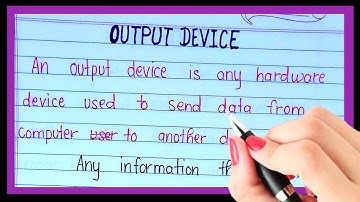 OUTPUT DEVICE
An output device is any hardware
device used to send data from
computer user to another d
Any information th